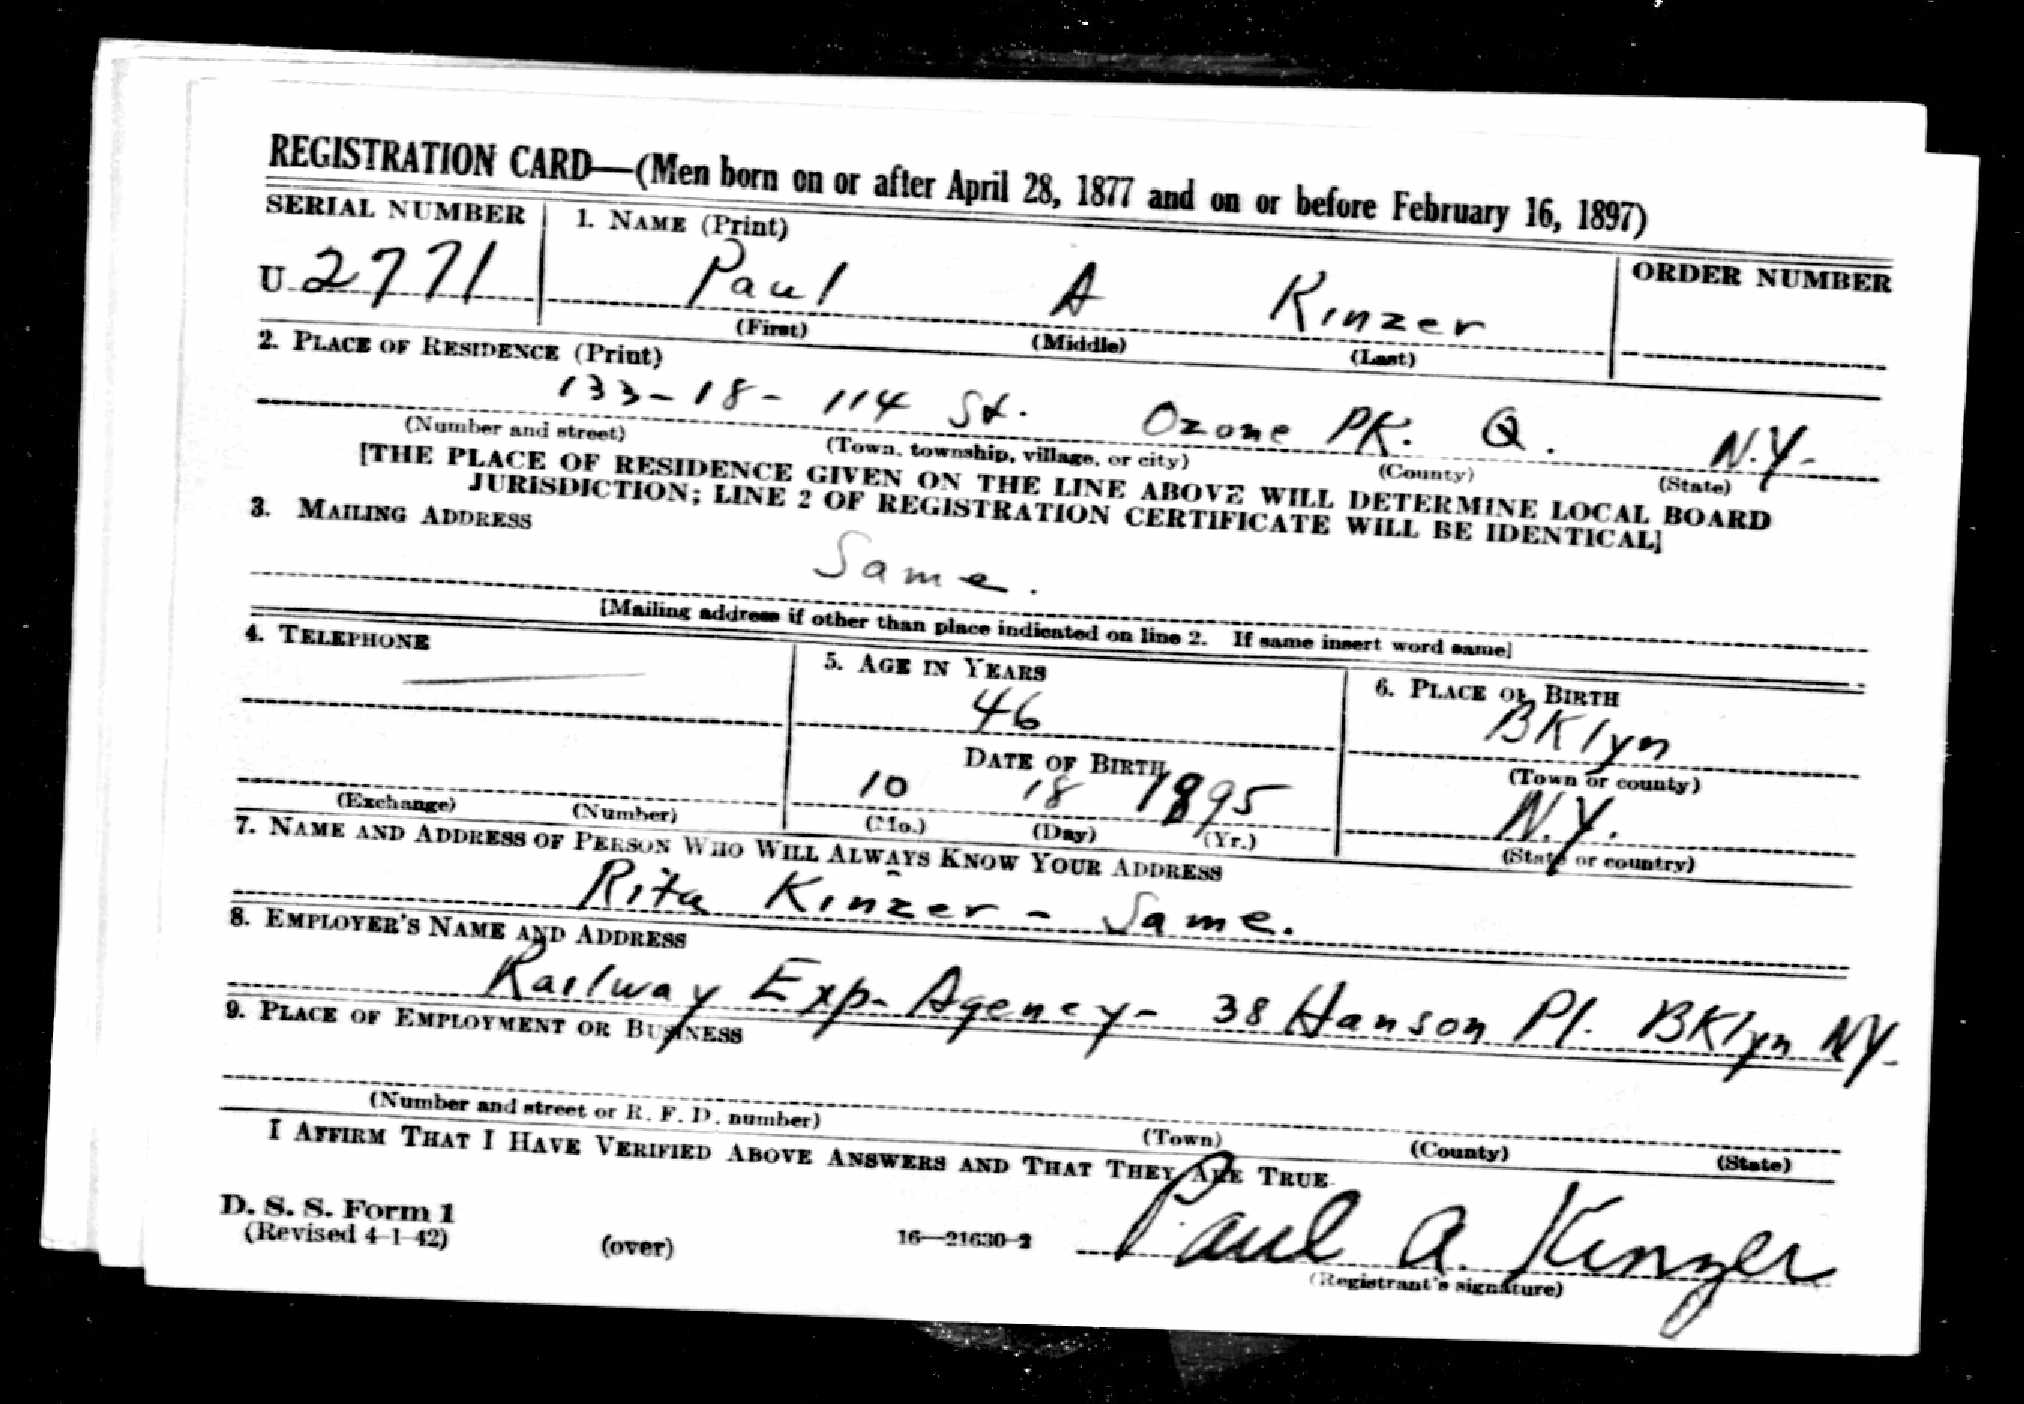 REGISTRATION CARD—(Men born on or after April 28, 1877 and on or before February 16, 1897)
SERIAL NUMBER 1. NAME (Print) ORDER NUMBER
U 2771 Paul A Kinzer
(First) (Middle) (Last)
2. PLACE OF RESIDENCE (Print)
133-18-114 St. Ozone PK. Q. N.Y-
(Number and street) (Town, township, village, or city) (County) (State)
[THE PLACE OF RESIDENCE GIVEN ON THE LINE ABOVE WILL DETERMINE LOCAL BOARD
JURISDICTION; LINE 2 OF REGISTRATION CERTIFICATE WILL BE IDENTICAL]
3. MAILING ADDRESS
Same.
[Mailing address if other than place indicated on line 2. If same insert word same]
4. TELEPHONE 5. AGE IN YEARS 6. PLACE OF BIRTH
46 BKlyn
DATE OF BIRTH (Town or county)
10 18 1895 N.Y.
(Exchange) (Number) (Mo.) (Day) (Yr.) (State or country)
7. NAME AND ADDRESS OF PERSON WHO WILL ALWAYS KNOW YOUR ADDRESS
Rita Kinzer - Same.
8. EMPLOYER'S NAME AND ADDRESS
Railway Exp- Agency- 38 Hanson Pl. BKlyn NY-
9. PLACE OF EMPLOYMENT OR BUSINESS
(Number and street or R. F. D. number) (Town) (County) (State)
I AFFIRM THAT I HAVE VERIFIED ABOVE ANSWERS AND THAT THEY ARE TRUE.
D. S. S. Form 1
(Revised 4-1-42) (over) 16—21630-2 Paul A. Kinzer
(Registrant's signature)